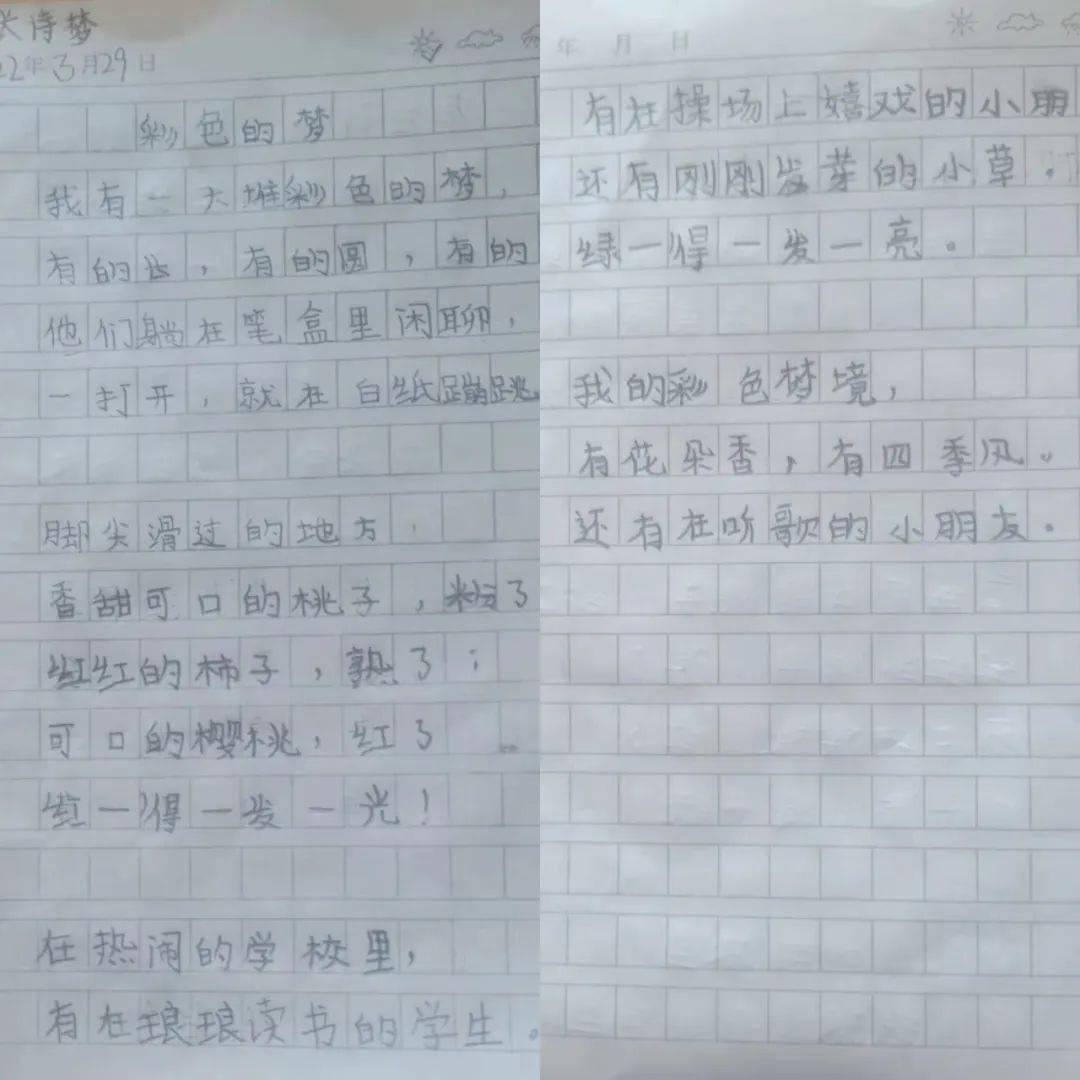 诗梦
22年3月29日
彩色的梦
我有一大堆彩色的梦，
有的长，有的圆，有的
他们躺在笔盒里闲聊，
一打开，就在白纸蹦跳
脚尖滑过的地方，
香甜可口的桃子，粉了
红红的柿子，熟了；
可口的樱桃，红了
红一得一发一光！
在热闹的学校里，
有在琅琅读书的学生。
年 月 日
有在操场上嬉戏的小朋
还有刚刚发芽的小草。
绿一得一发一亮。
我的彩色梦境，
有花朵香，有四季风。
还有在听歌的小朋友。